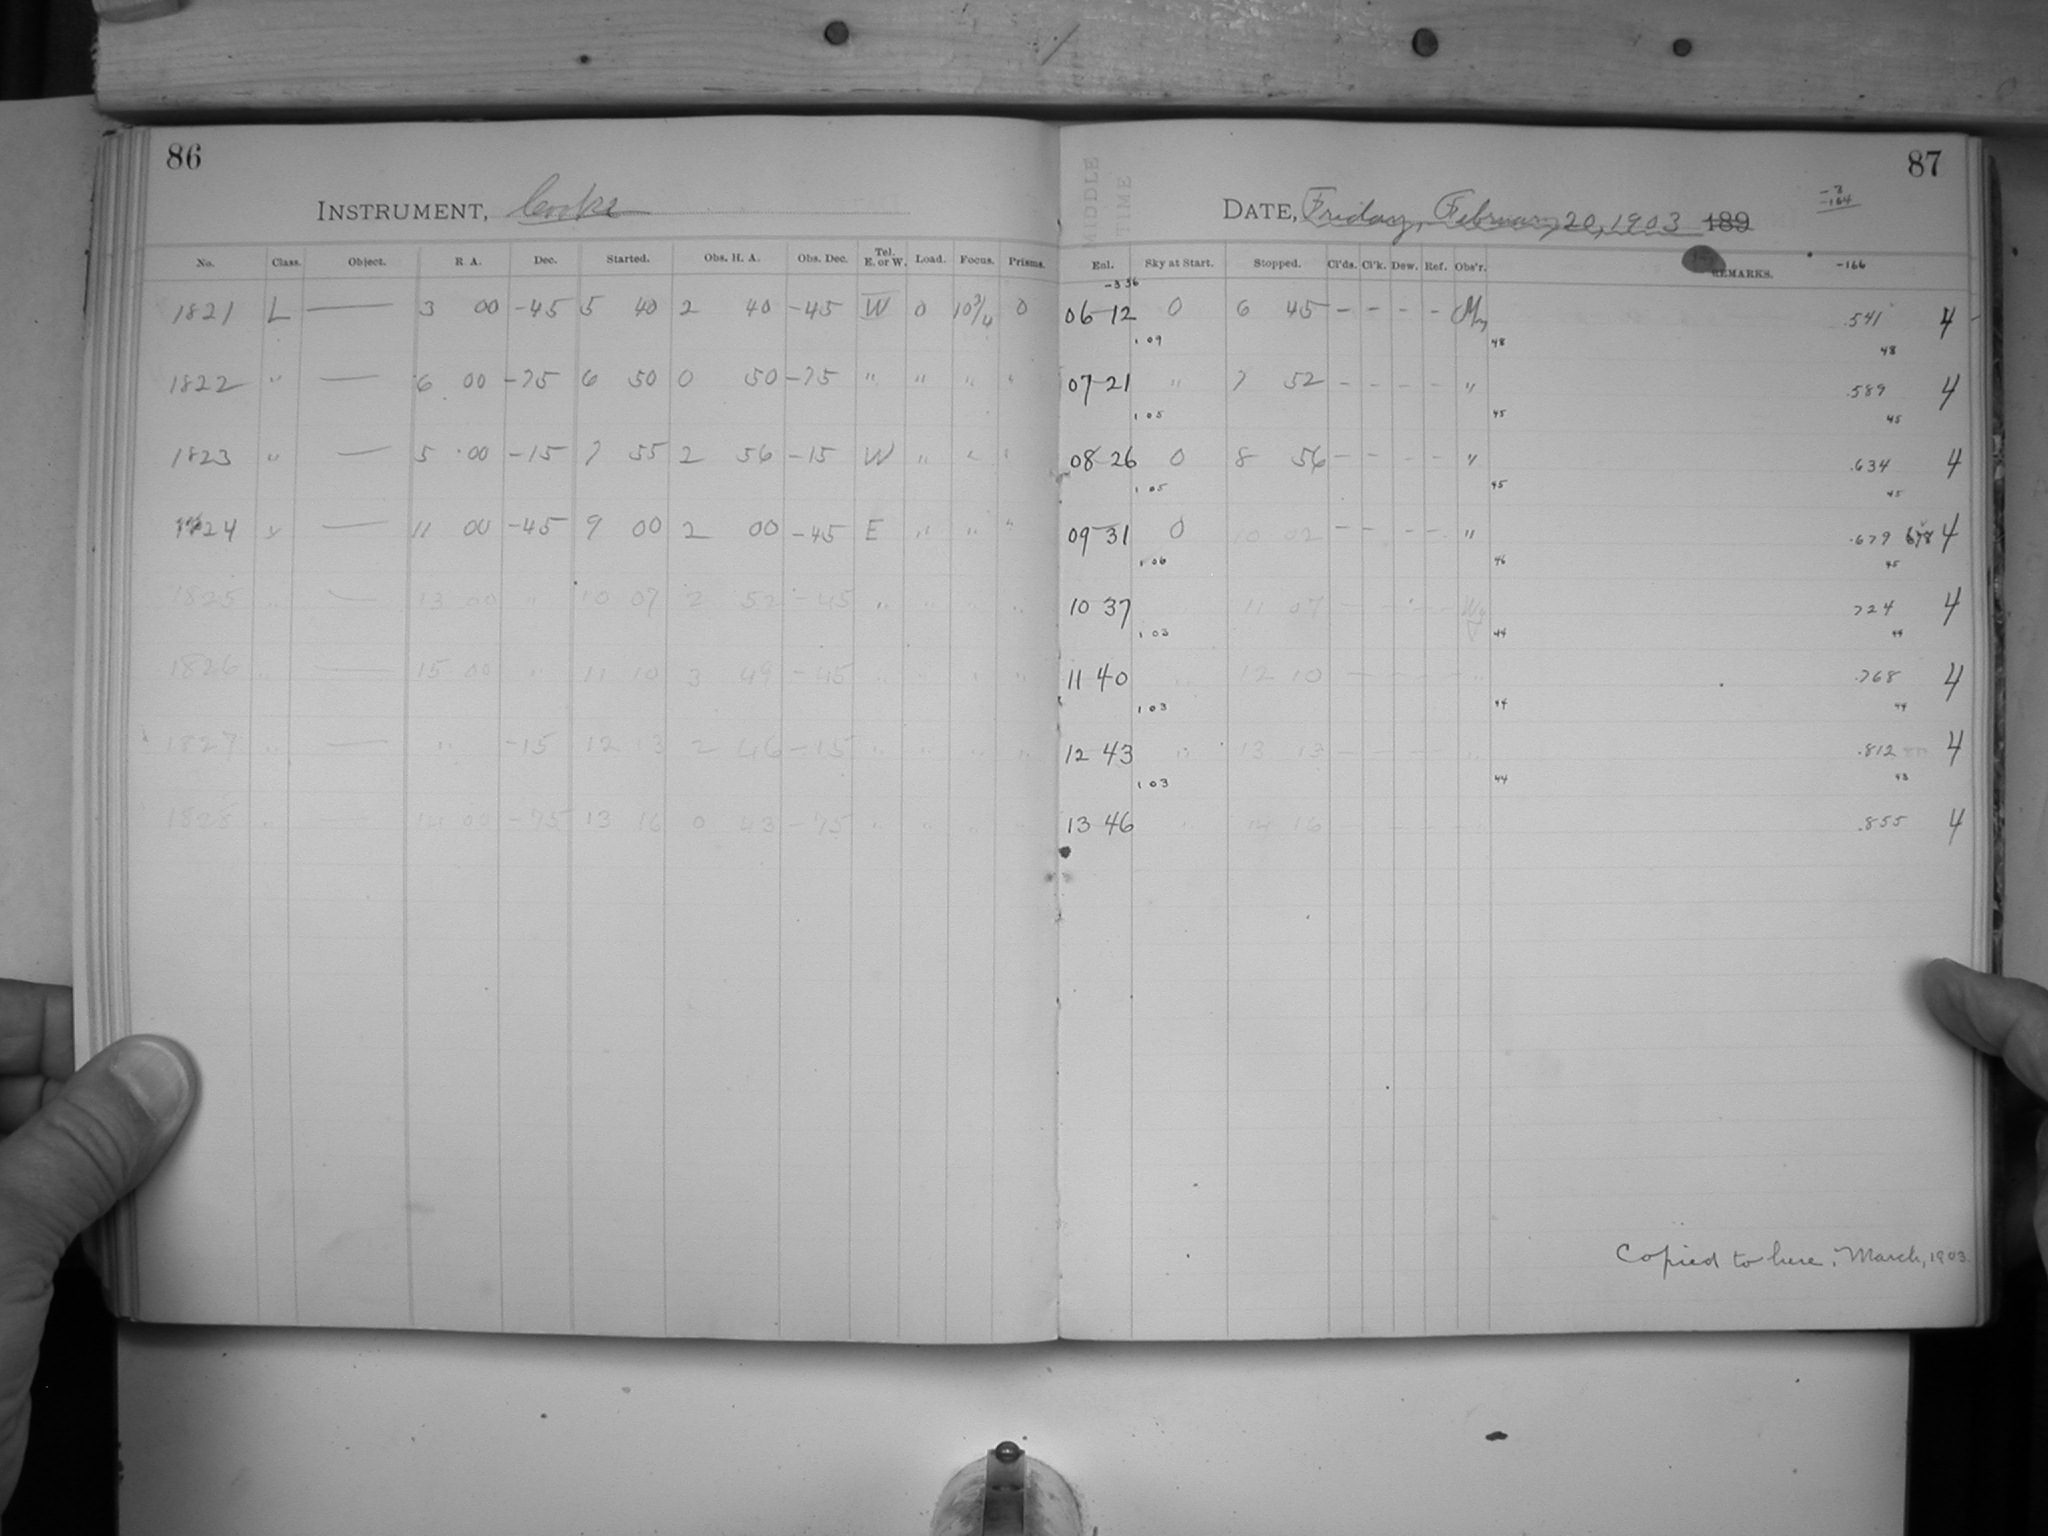 86
INSTRUMENT, Cooke
No. Class. Object. R A. Dec. Started. Obs. H. A. Obs. Dec. Tel. E. or W. Load. Focus. Prisms.
1821 L — 3 00 -45 5 40 2 40 -45 W 0 10 3/4 0
1822 " — 6 00 -75 6 50 0 50 -75 " " " "
1823 " — 5 00 -15 7 55 2 56 -15 W " " "
1824 " — 11 00 -45 9 00 2 00 -45 E " " "
1825 " — 13 00 " 10 07 2 52 -45 " " " "
1826 " — 15 00 " 11 10 3 49 -45 " " " "
1827 " — " -15 12 13 2 46 -15 " " " "
1828 " — 14 00 -75 13 16 0 43 -75 " " " "
87
MIDDLE
TIME
DATE, Friday, February 20, 1903 189
-3
-164
Enl. Sky at Start. Stopped. Cl'ds. Cl'k. Dew. Ref. Obs'r. REMARKS. -166
-3 56
06-12 0 6 45 - - - - .541 4
1 09 48 48
07-21 " 7 52 - - - - " .589 4
1 05 45 45
08 26 0 8 56 - - - - " .634 4
1 05 45 45
09-31 0 10 02 - - - - " .679 678 4
1 06 46 45
10 37 " 11 07 - - - - 724 4
1 03 44 44
11 40 " 12 10 - - - - " .768 4
1 03 44 44
12 43 " 13 13 - - - - " .812 4
1 03 44 43
13 46 " 14 16 - - - - .855 4
Copied to here. March, 1903.